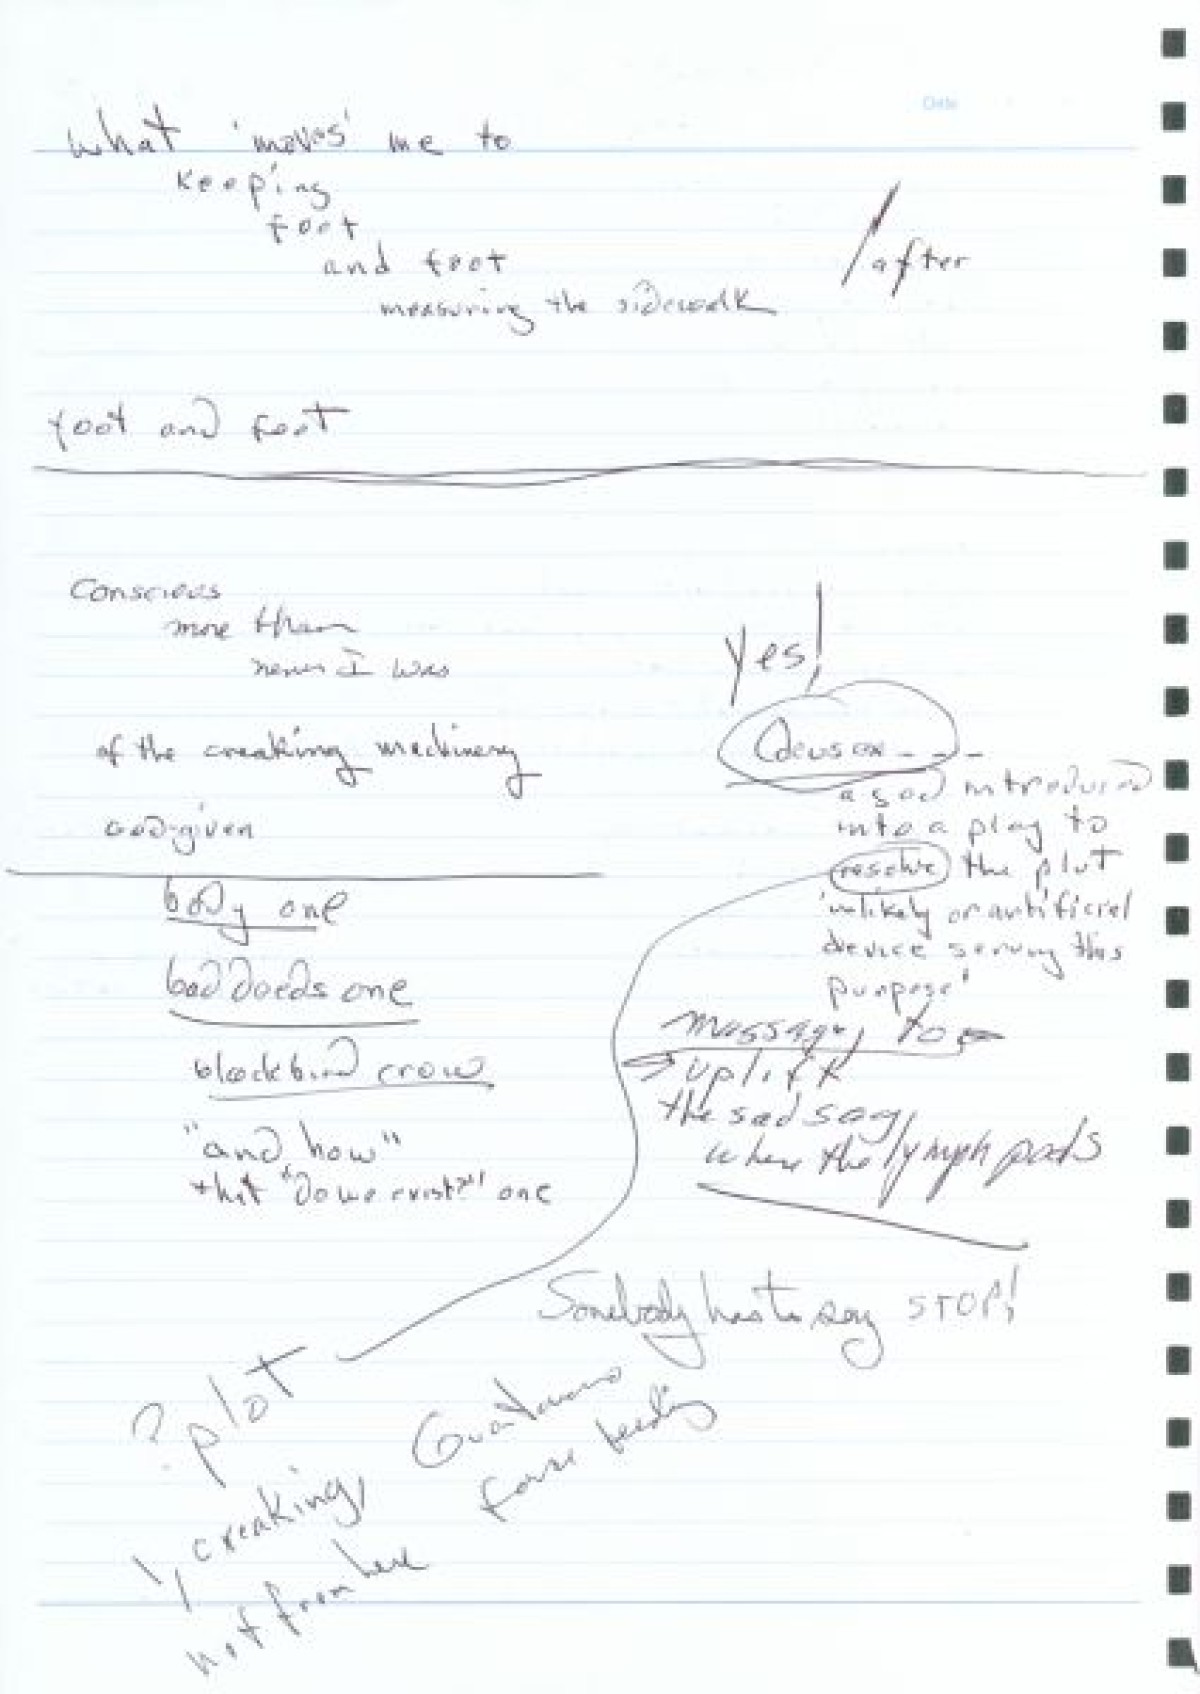 Date
what 'moves' me to
keeping
foot
and foot
measuring the sidewalk
/after
foot and foot
Conscious
more than
never I was
of the creaking machinery
god-given
body one
bad deeds one
blackbird crow
"and how"
that "do we exist?" one
Yes!
Deus ex ---
a god introduced
into a play to
resolve the plot
'unlikely or artificial
device serving this
purpose'
message, to
uplift
the sad sag
where the lymph pads
Somebody has to say STOP!
? plot
Guantanamo
force feeding
creaking,
not from here